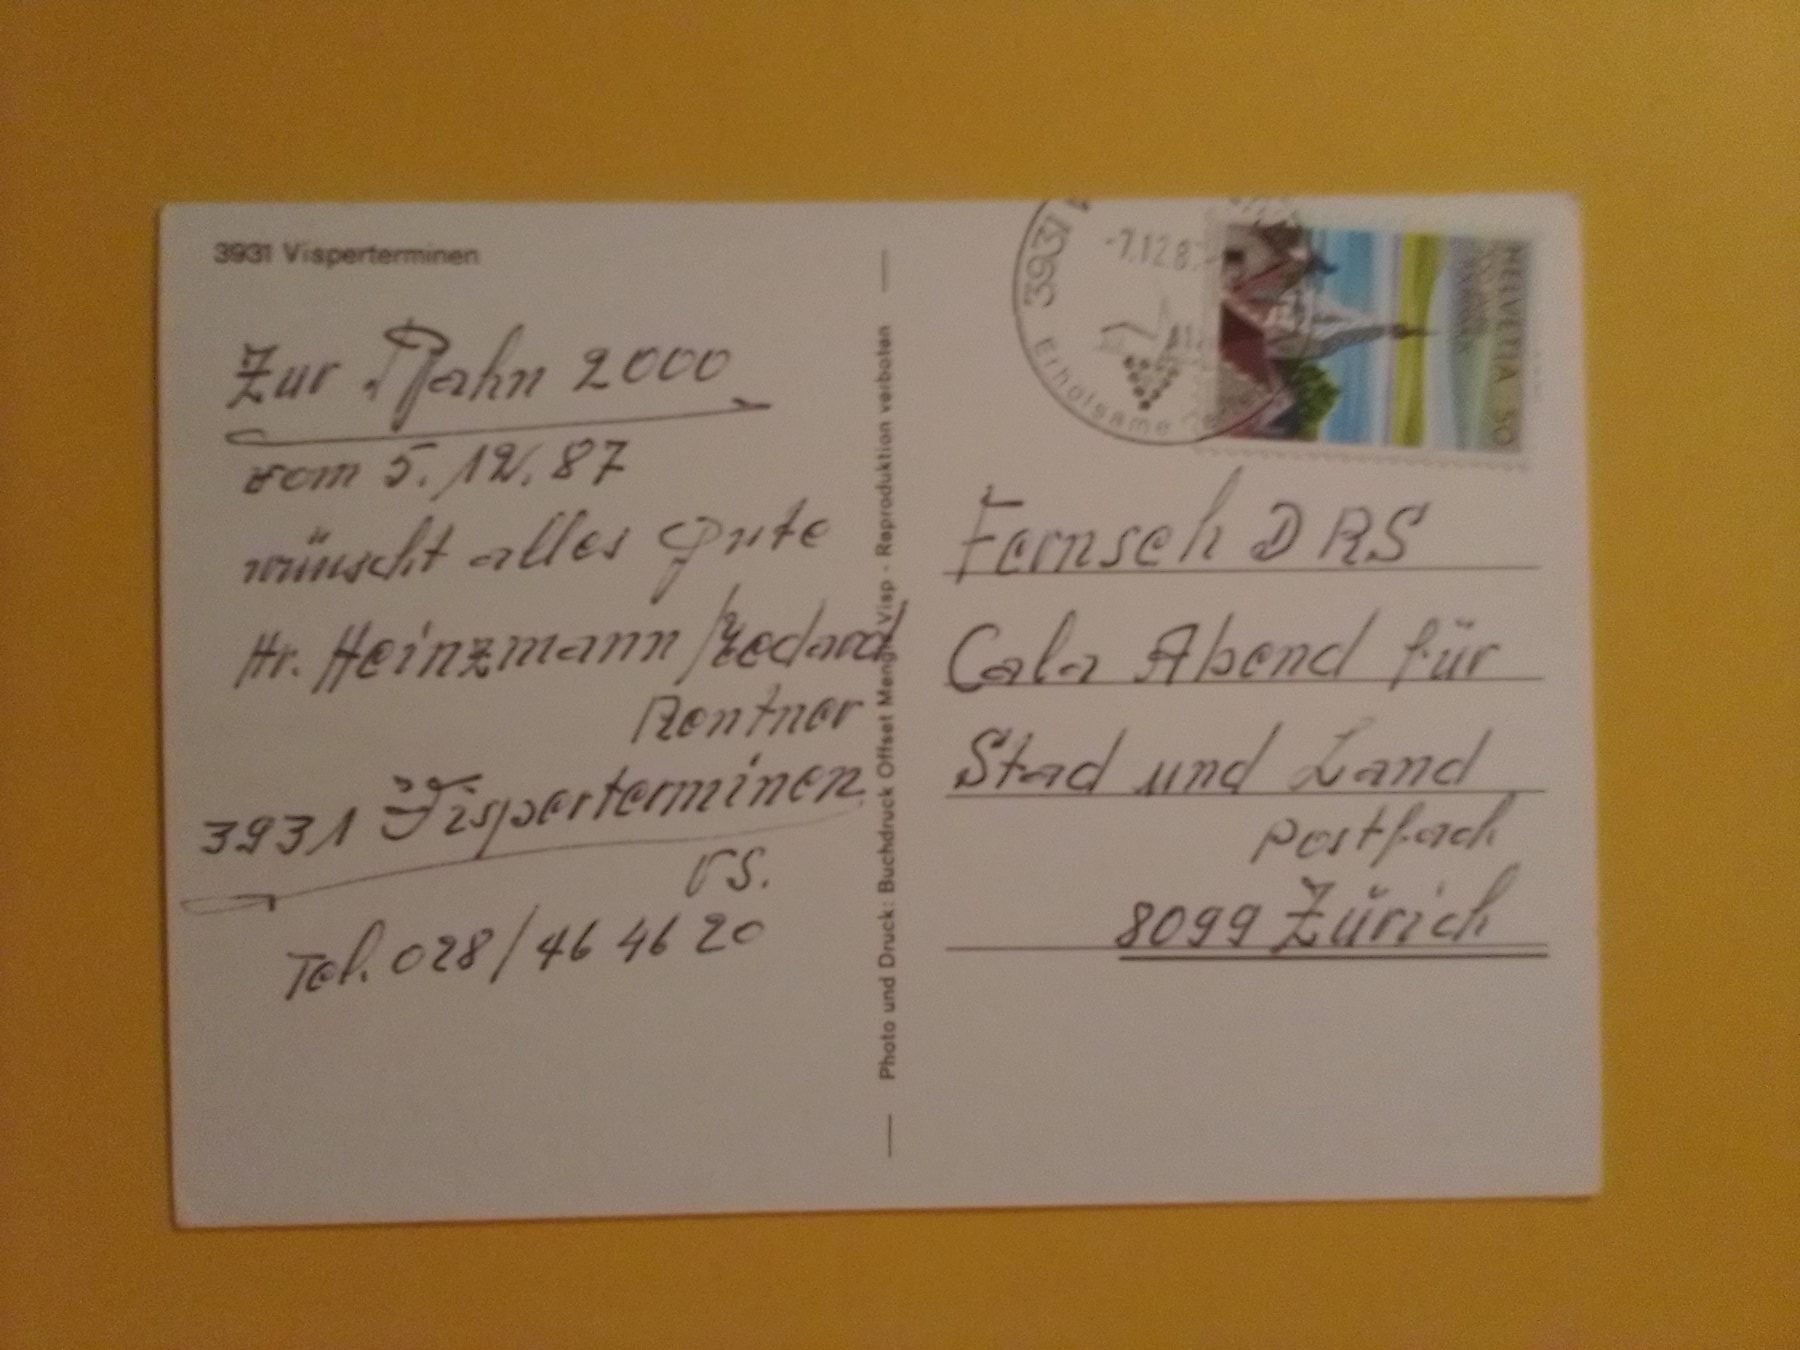 3931 Visperterminen
Zur Bahn 2000
vom 5.12.87
wünscht alles Gute
Hr. Heinzmann Medard
Rentner
3931 Visperterminen
VS.
Tel. 028/46 46 20
Photo und Druck: Buchdruck Offset Mengis Visp - Reproduktion verboten
3931
-7.12.87
Erholsame
HELVETIA 50
Fernseh DRS
Cala Abend für
Stad und Land
Postfach
8099 Zürich